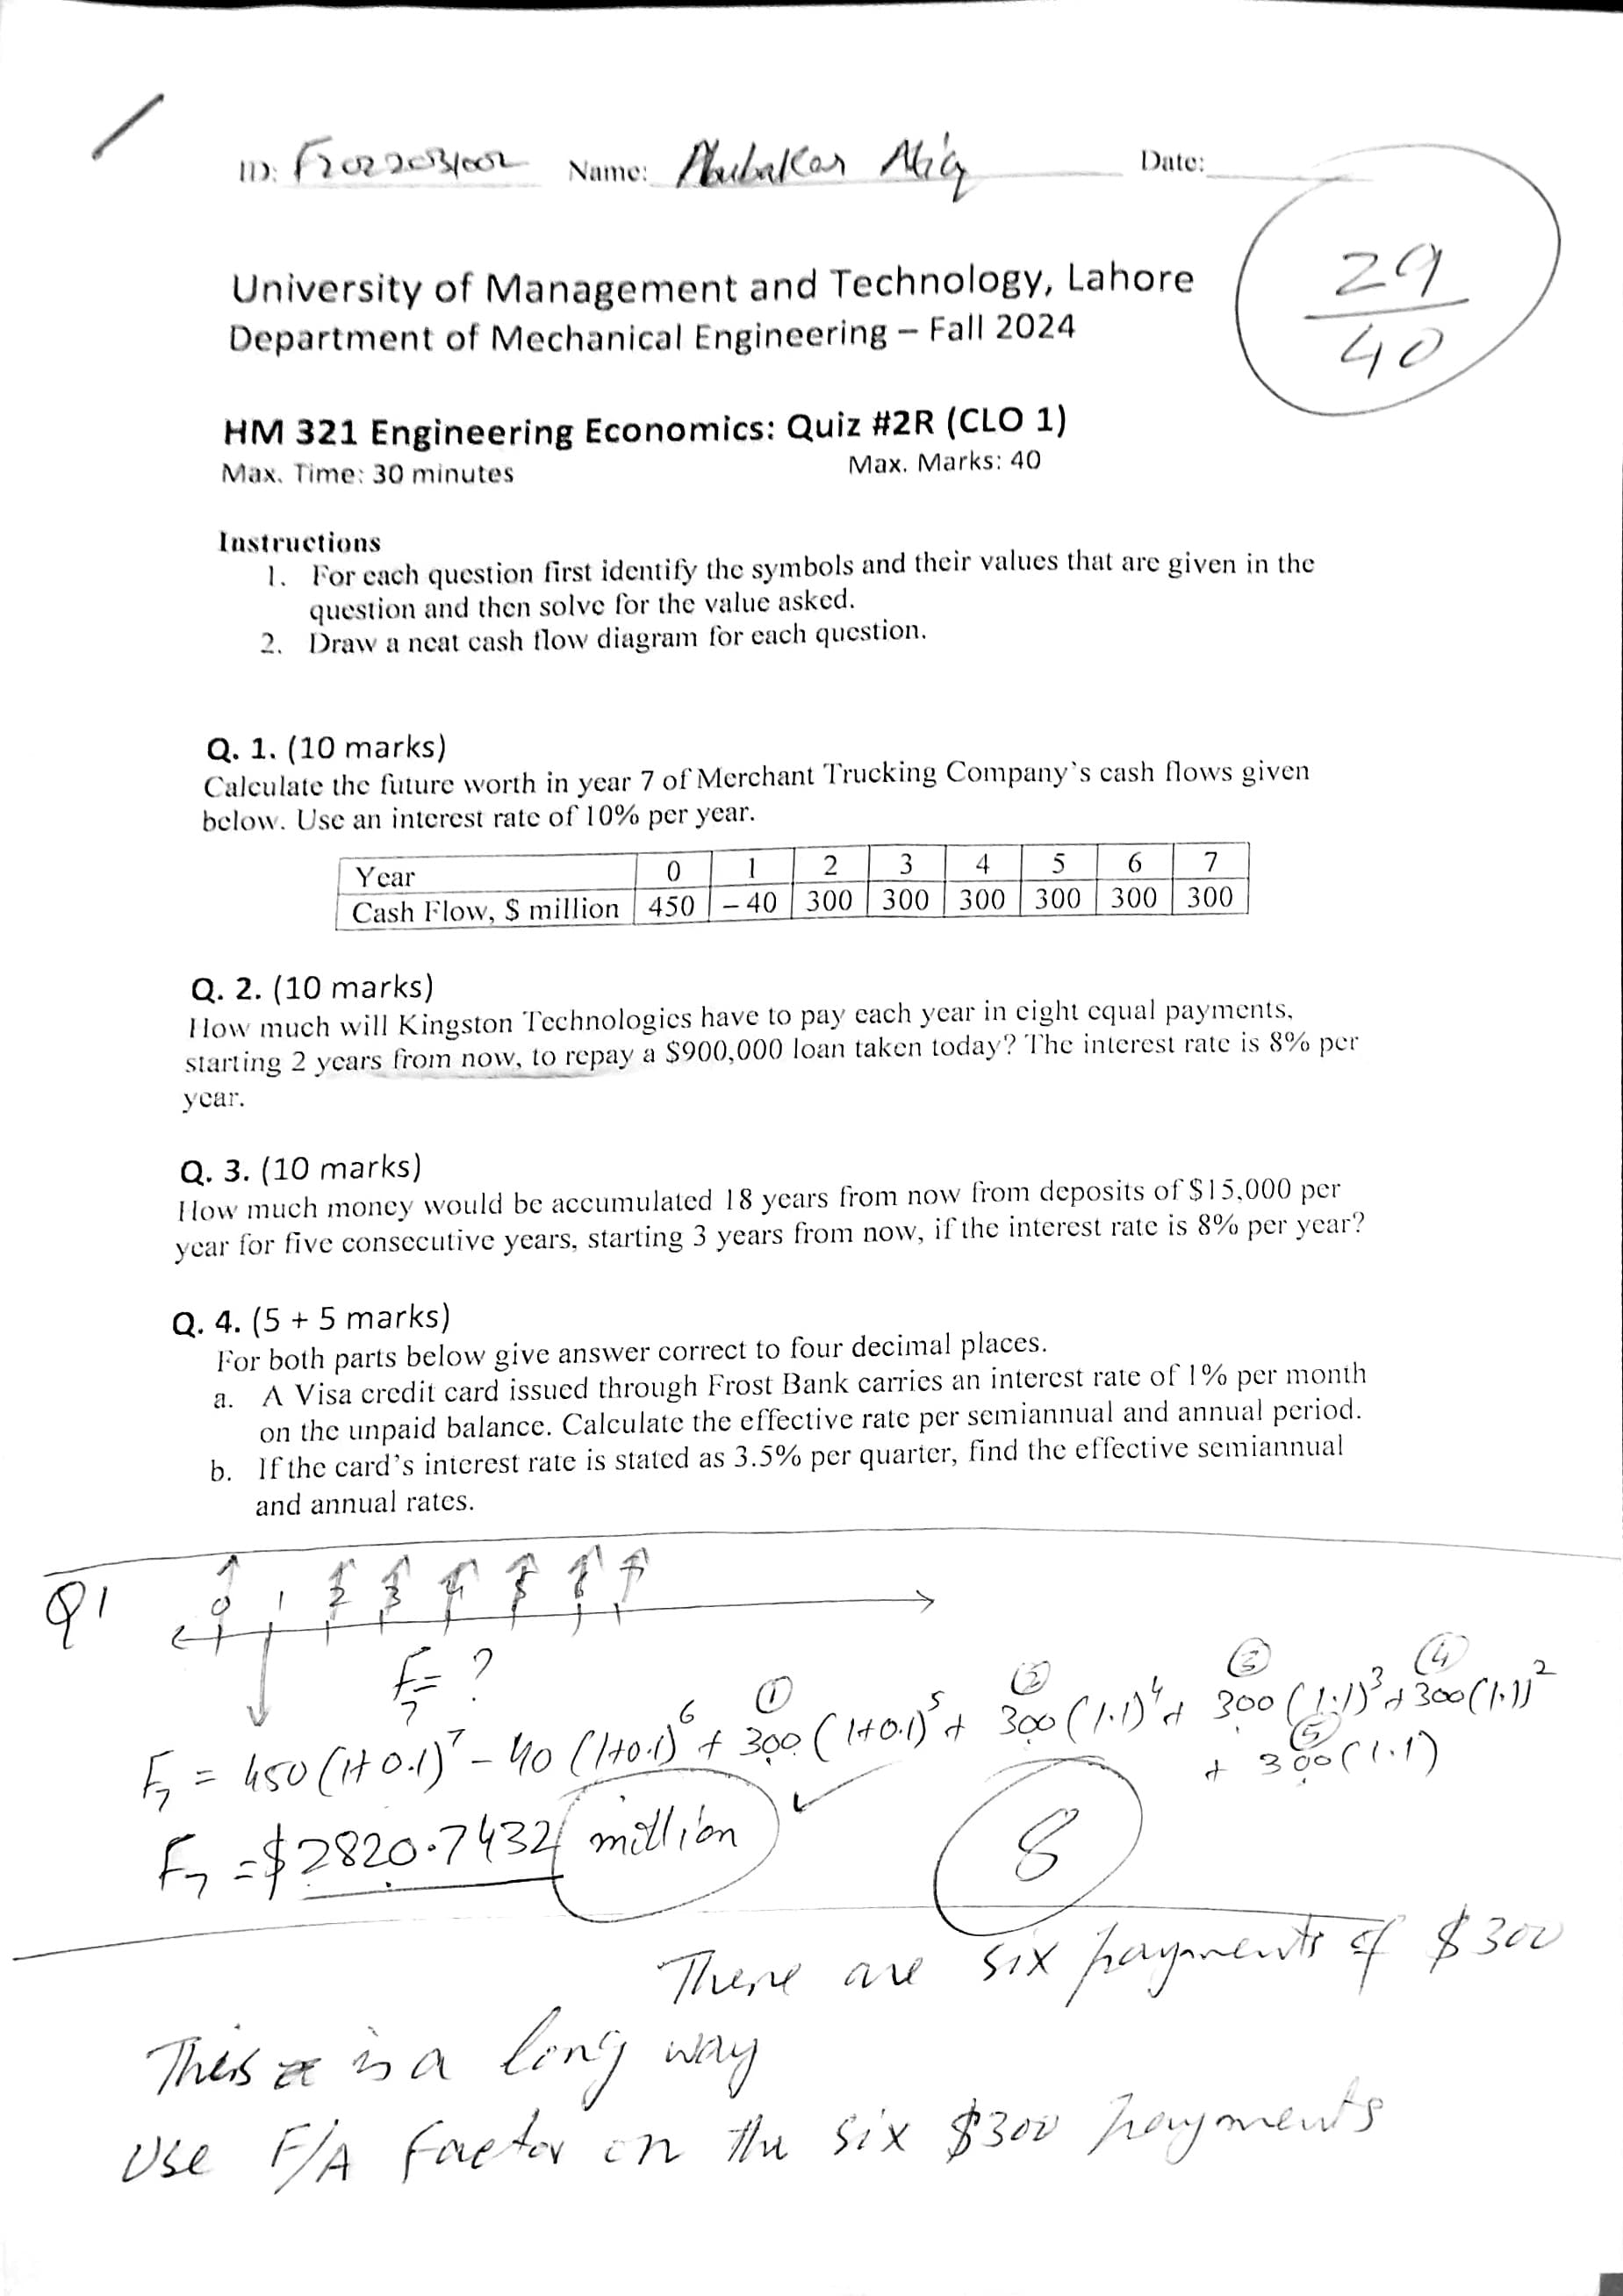 ID: F2022031002 Name: Abubakar Atiq Date:
29
40
University of Management and Technology, Lahore
Department of Mechanical Engineering – Fall 2024
HM 321 Engineering Economics: Quiz #2R (CLO 1)
Max. Time: 30 minutes Max. Marks: 40
Instructions
1. For each question first identify the symbols and their values that are given in the
question and then solve for the value asked.
2. Draw a neat cash flow diagram for each question.
Q. 1. (10 marks)
Calculate the future worth in year 7 of Merchant Trucking Company's cash flows given
below. Use an interest rate of 10% per year.
Year 0 1 2 3 4 5 6 7
Cash Flow, $ million 450 – 40 300 300 300 300 300 300
Q. 2. (10 marks)
How much will Kingston Technologies have to pay each year in eight equal payments,
starting 2 years from now, to repay a $900,000 loan taken today? The interest rate is 8% per
year.
Q. 3. (10 marks)
How much money would be accumulated 18 years from now from deposits of $15,000 per
year for five consecutive years, starting 3 years from now, if the interest rate is 8% per year?
Q. 4. (5 + 5 marks)
For both parts below give answer correct to four decimal places.
a. A Visa credit card issued through Frost Bank carries an interest rate of 1% per month
on the unpaid balance. Calculate the effective rate per semiannual and annual period.
b. If the card's interest rate is stated as 3.5% per quarter, find the effective semiannual
and annual rates.
Q1 0 1 2 3 4 5 6 7
F7 = ?
① ② ③ ④
F7 = 450 (1+0.1)^7 – 40 (1+0.1)^6 + 300 (1+0.1)^5 + 300 (1.1)^4 + 300 (1.1)^3 + 300 (1.1)^2
⑤
+ 300 (1.1)
F7 = $2820.7432 million ✓ 8
There are six payments of $300
This is a long way
Use F/A factor on the six $300 payments